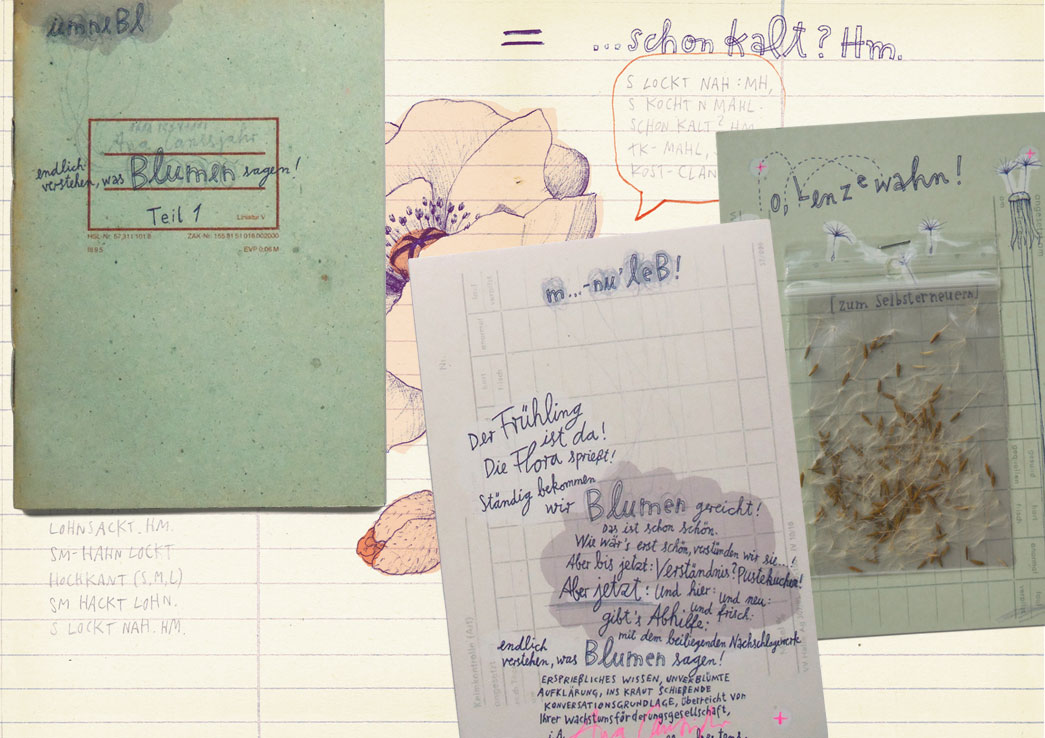 ...nuleBl
Blumen
endlich
verstehen, was Blumen sagen!
Teil 1
Lineatur V
EVP 0,06 M
= ...schon kalt? Hm.
S LOCKT NAH: MH,
S KOCHT N MAHL.
SCHON KALT? HM.
TK-MAHL,
KOST-CLAN
o, Lenzewahn!
[zum Selbsterneuern]
m...-nu' leB!
Der Frühling
ist da!
Die Flora sprießt!
Ständig bekommen
wir Blumen gereicht!
Das ist schon schön.
Wie wär's erst schön, verstünden wir sie...
Aber bis jetzt: Verständnis? Pustekuchen!
Aber jetzt: und hier: und neu:
gibt's Abhilfe: und frisch:
mit dem beiliegenden Nachschlagewerk
endlich
verstehen, was Blumen sagen!
ERSPRIEßLICHES WISSEN, UNVERBLÜMTE
AUFKLÄRUNG, INS KRAUT SCHIEßENDE
KONVERSATIONSGRUNDLAGE, überreicht von
Ihrer Wachstumsförderungsgesellschaft,
i.A.
Keimkontrolle (Art)
LOHNSACKT. HM.
SM-HAHN LOCKT
HOCHKANT (S, M, L)
SM HACKT LOHN.
S LOCKT NAH. HM.